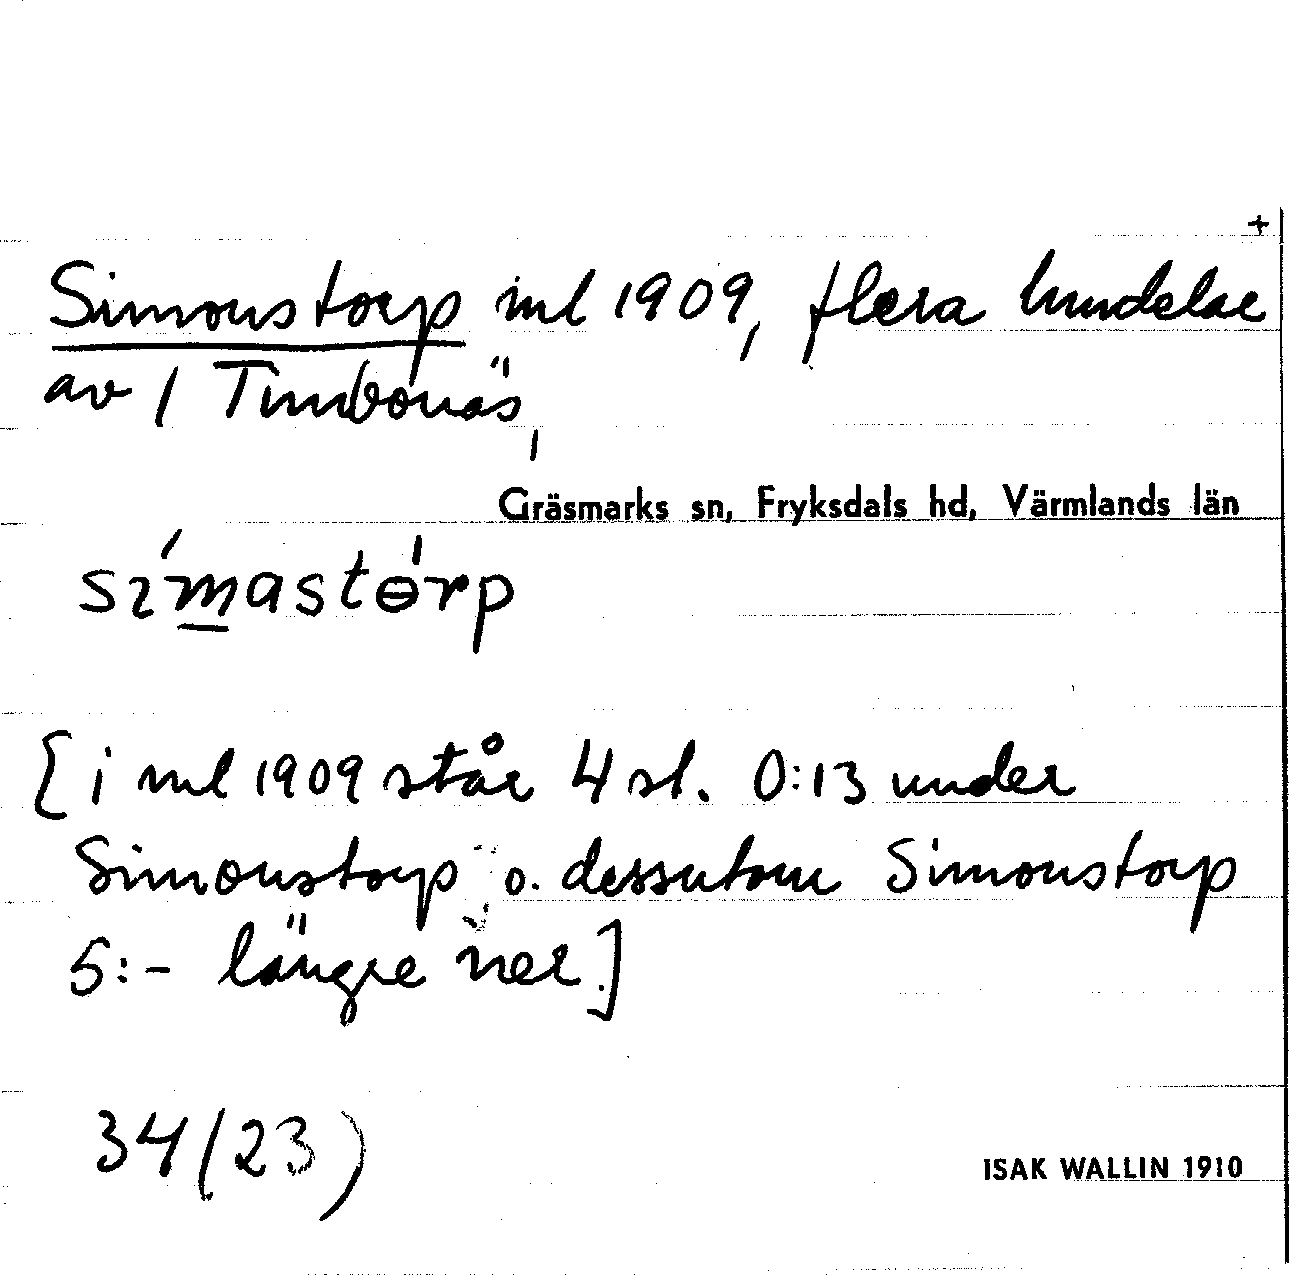 +
Simonstorp iml 1909, flera hmdelar
av / Timbonäs,
Gräsmarks sn, Fryksdals hd, Värmlands län
símastɵ́rp
[i ml 1909 står 4 st. 0:13 under
Simonstorp o. dessutom Simonstorp
5:- längre ner.]
34/23)
ISAK WALLIN 1910